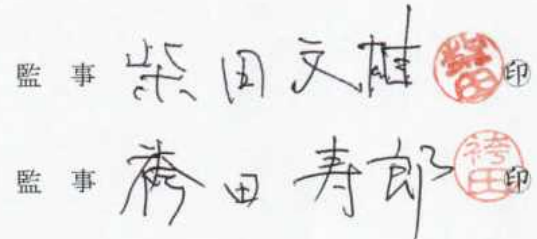 監 事 柴田文雄 柴田 ㊞
監 事 袴田寿郎 袴田 ㊞